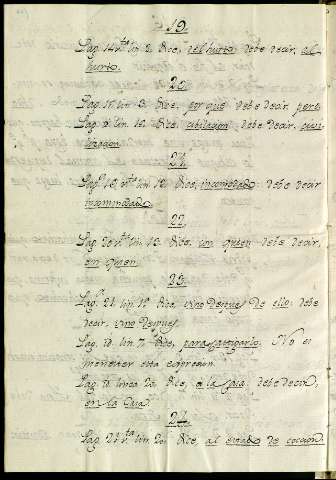 19.
Pag. 14 vta. lin. 2. Dice, del hurto: debe decir, al
hurto.
20.
Pag. 15. lin. 3. Dice, por que: debe decir, pero
Pag. lin. 12. Dice, debe decir, civi
lizacion.
21.
Pag. 16. vta. lin. 12. Dice, incomodado: debe decir
22.
Pag. 20 vta. lin. 12. Dice, un quien: debe decir,
en quien.
23.
Pag. 21. lin. 12. Dice, vino despues de ello: debe
decir, vino despues.
Pag. lin. 7. Dice, para castigarlo. No es
menester esta expresion.
Pag. linea 20. Dice, a la Casa: debe decir,
en la Casa.
24.
Pag. 21 vta. lin. 20. Dice, al estado de coccion,